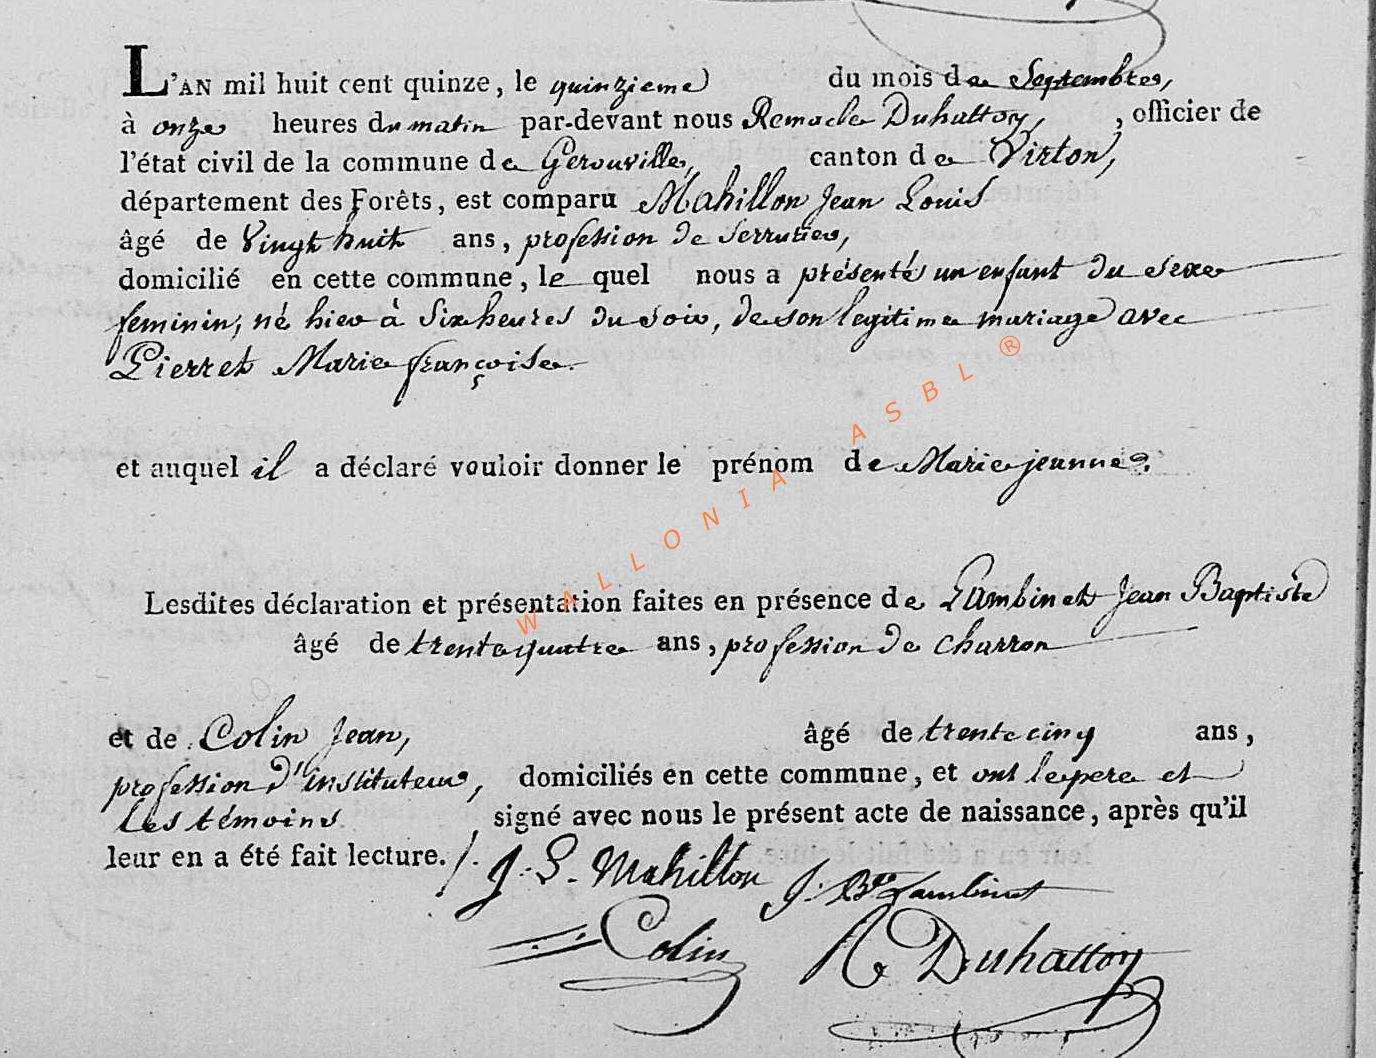 L'AN mil huit cent quinze, le quinzieme du mois de Septembre,
à onze heures du matin par-devant nous Remacle Duhattoy, , officier de
l'état civil de la commune de Gerouville, canton de Virton,
département des Forêts, est comparu Mahillon Jean Louis
âgé de Vingt huit ans, profession de Serrurier,
domicilié en cette commune, le quel nous a présenté un enfant du sexe
feminin, né hier à Six heures du soir, de son legitime mariage avec
Pierret Marie françoise.
et auquel il a déclaré vouloir donner le prénom de Marie jeanne.
Lesdites déclaration et présentation faites en présence de Lambinet Jean Baptiste
âgé de trente quatre ans, profession de charron
et de Colin Jean, âgé de trente cinq ans,
profession d'instituteur, domiciliés en cette commune, et ont le pere et
Les témoins signé avec nous le présent acte de naissance, après qu'il
leur en a été fait lecture. /.
J. L. Mahillon J. Bte Lambinet
Colin R Duhattoy
WALLONIA ASBL ®